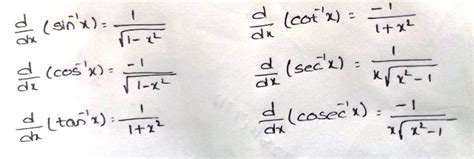 d/dx (sin⁻¹x) = 1/√(1-x²)
d/dx (cos⁻¹x) = -1/√(1-x²)
d/dx (tan⁻¹x) = 1/(1+x²)
d/dx (cot⁻¹x) = -1/(1+x²)
d/dx (sec⁻¹x) = 1/(x√(x²-1))
d/dx (cosec⁻¹x) = -1/(x√(x²-1))